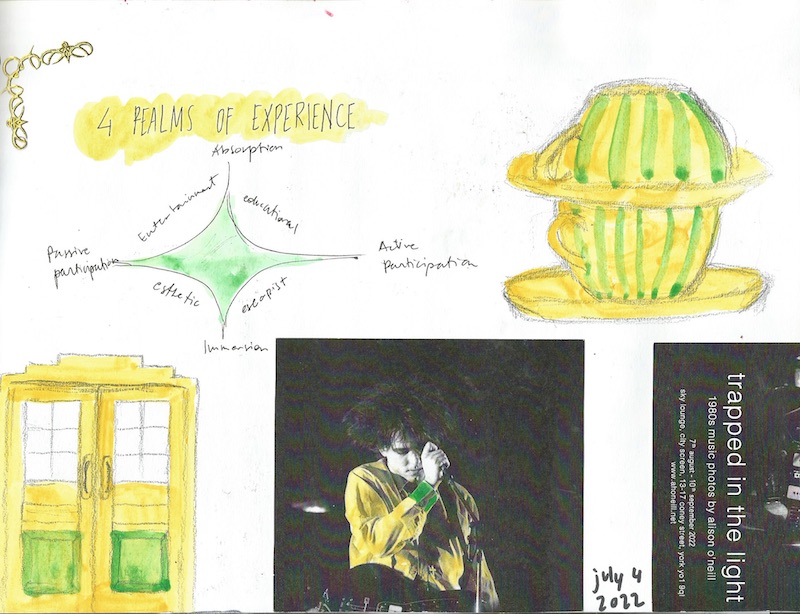 4 REALMS OF EXPERIENCE
Absorption
Entertainment
educational
Passive
participation
Active
Participation
esthetic
escapist
Immersion
trapped in the light
1980s music photos by alison o'neill
7th august - 10th september 2022
sky lounge, city screen, 13-17 coney street, york yo1 9ql
www.ahoneill.net
july 4
2022